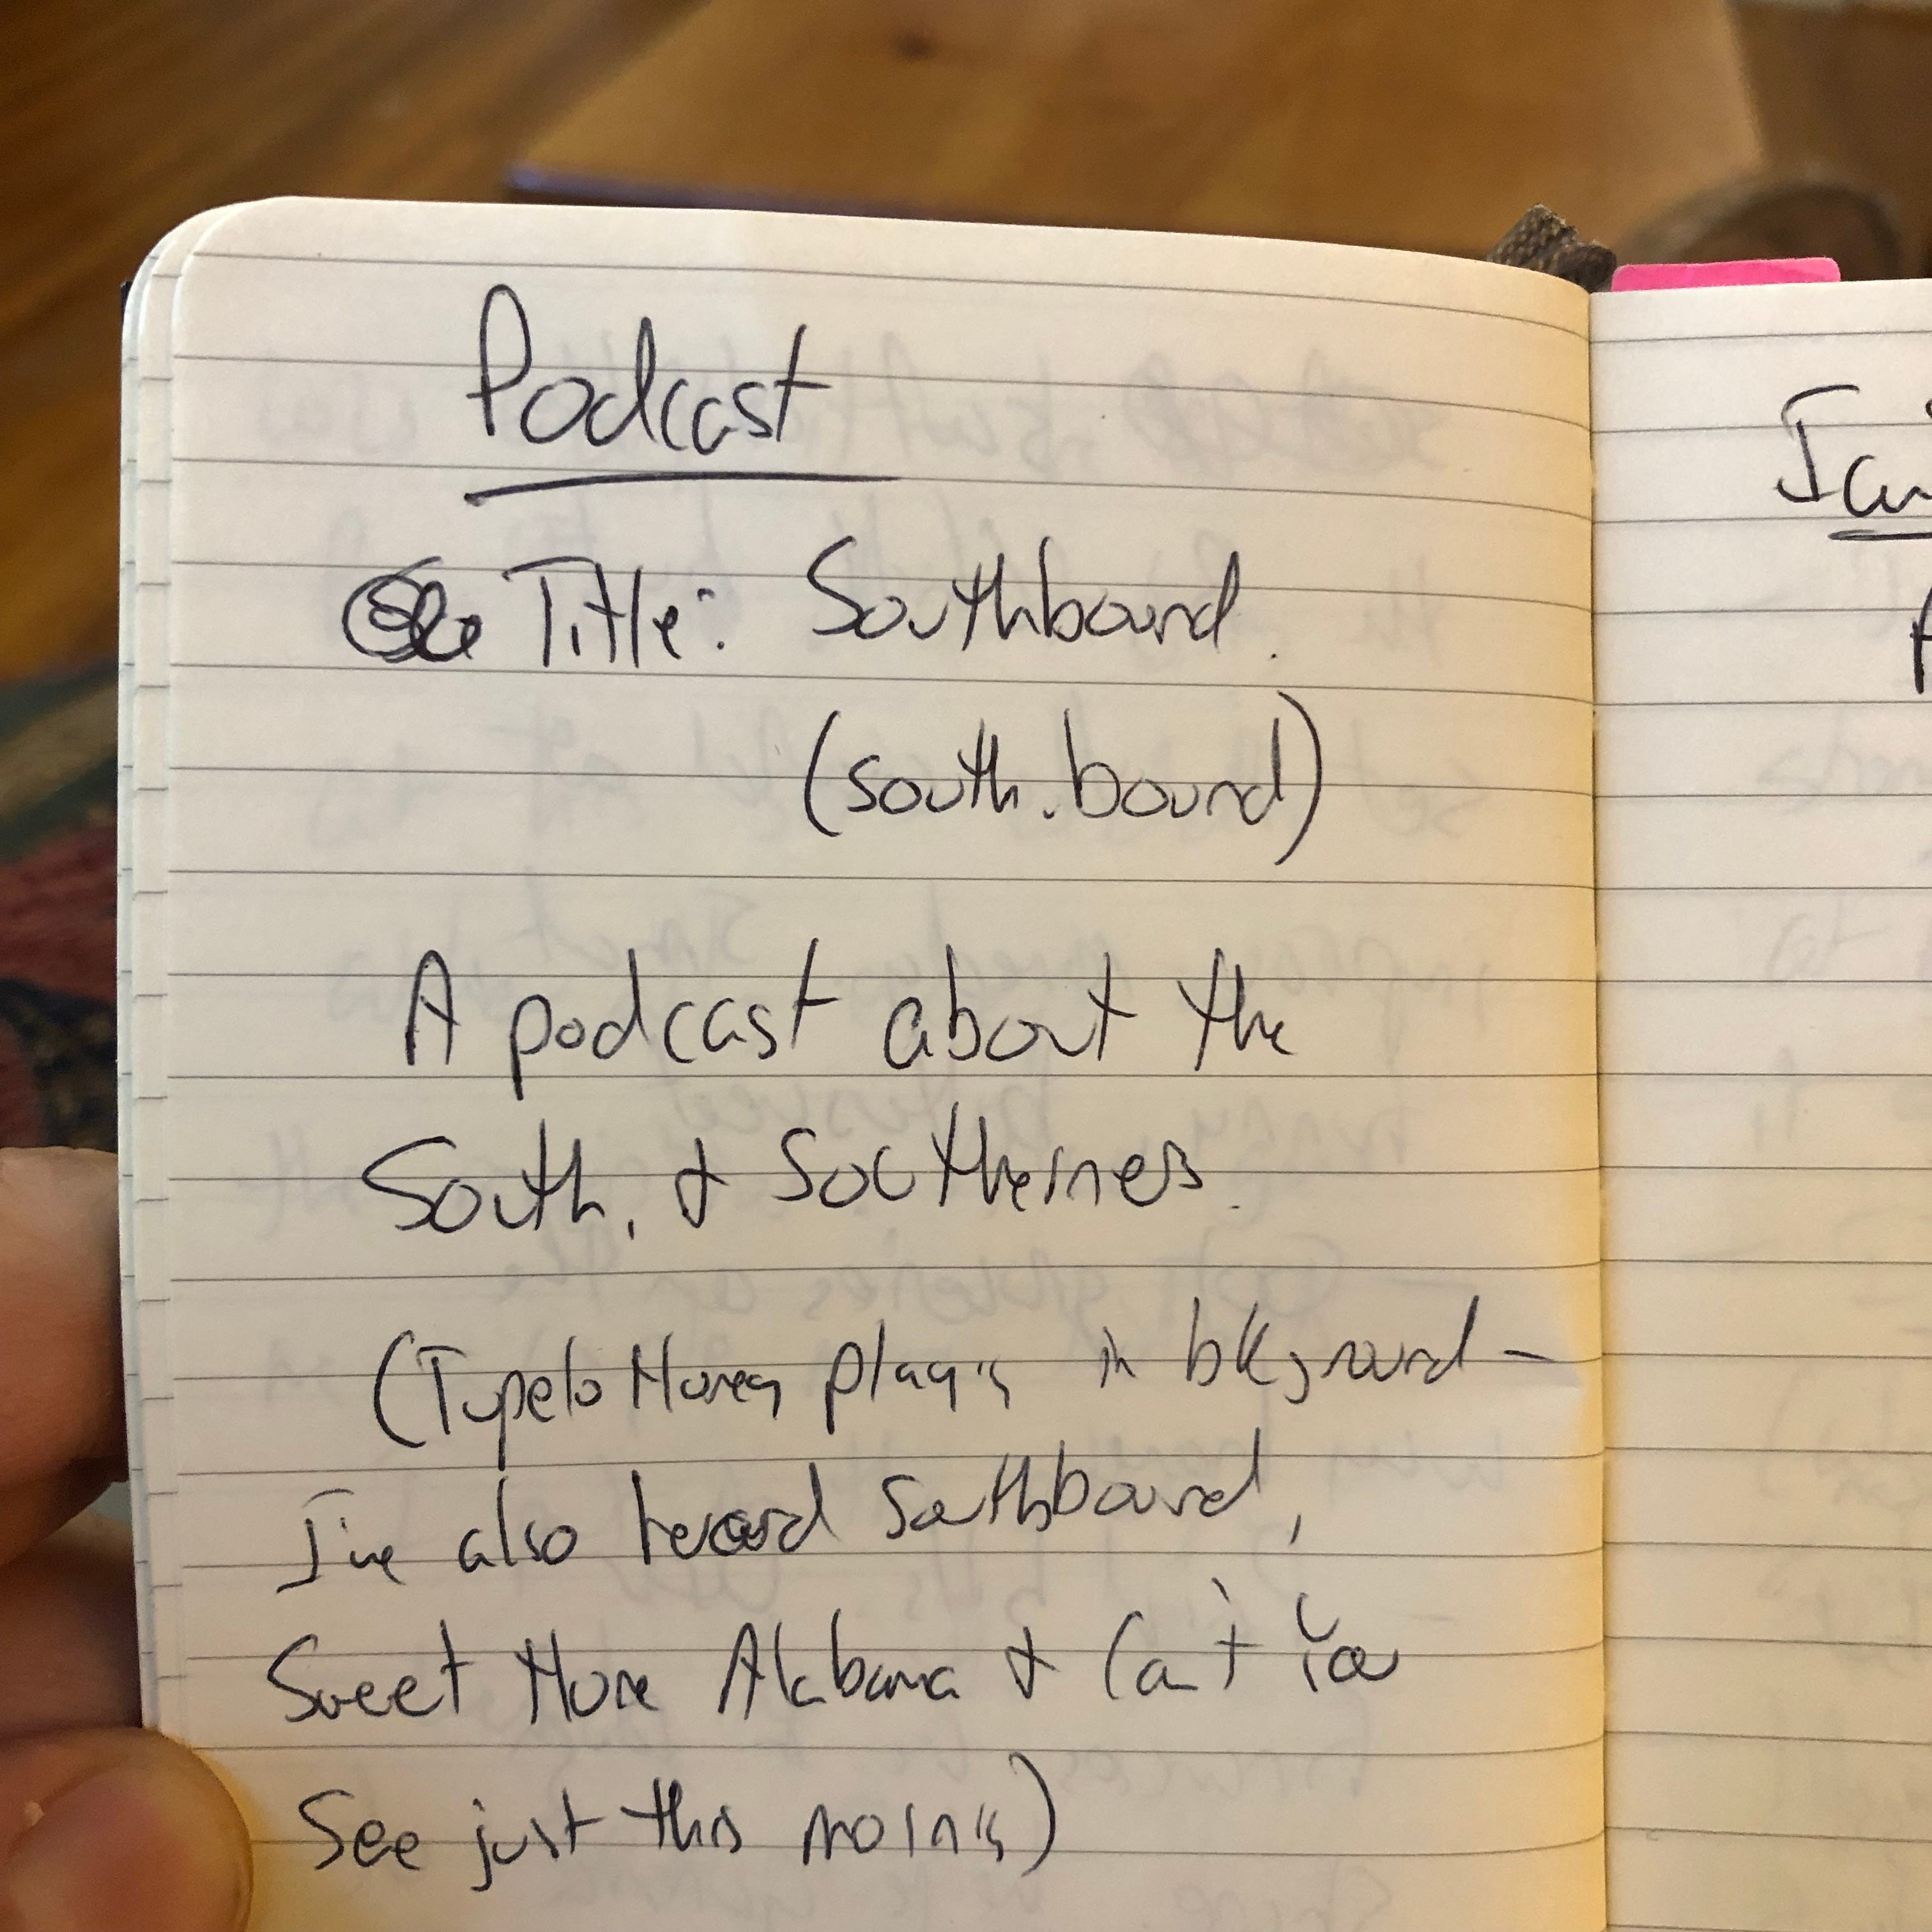 Podcast
Title: Southbound.
(south.bound)
A podcast about the
South, & Southerness.
(Tupelo Honey playing in bkground –
I've also heard Southbound,
Sweet Home Alabama & Can't You
See just this morning)